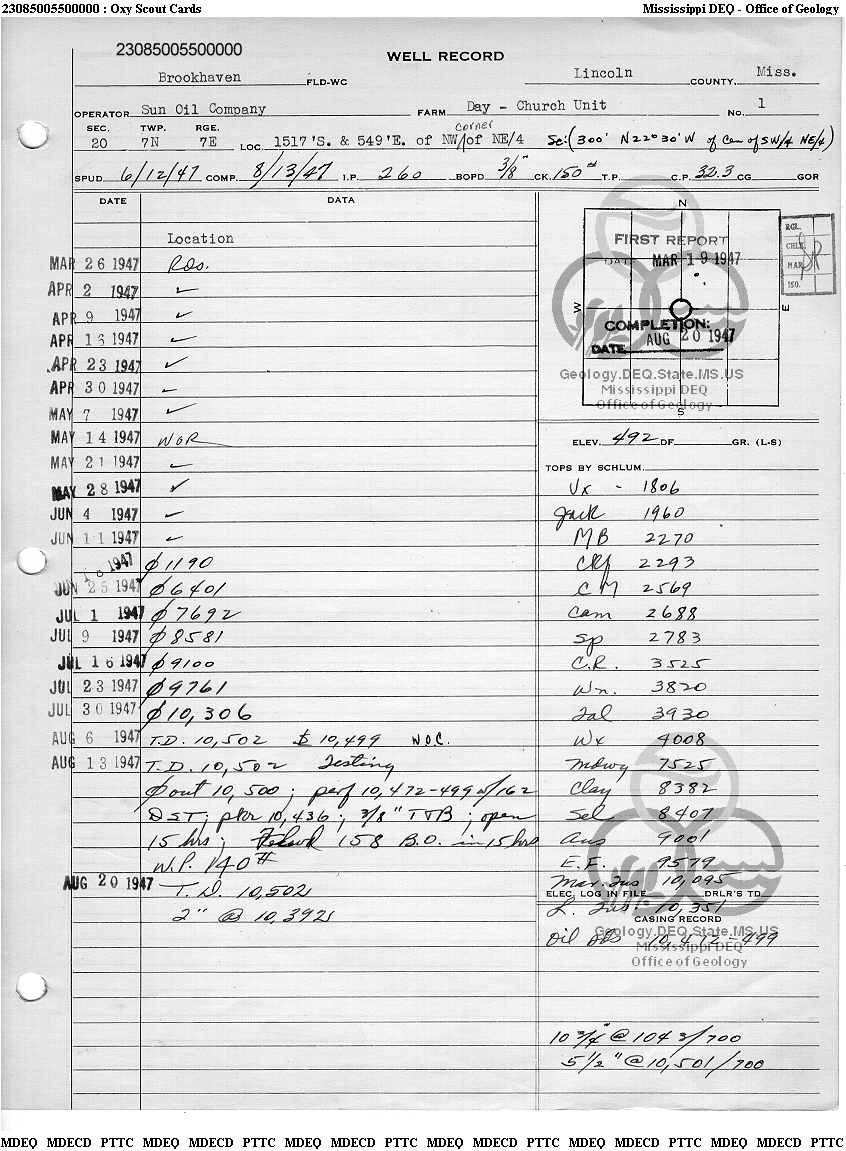 23085005500000 : Oxy Scout Cards Mississippi DEQ - Office of Geology
23085005500000
WELL RECORD
Brookhaven FLD-WC Lincoln COUNTY, Miss.
OPERATOR Sun Oil Company FARM Day - Church Unit NO. 1
SEC. TWP. RGE. corner
20 7N 7E LOC. 1517'S. & 549'E. of NW/ of NE/4 Sc: (300' N22°30'W of Cen of SW/4 NE/4)
SPUD 6/12/47 COMP. 8/13/47 I.P. 260 BOPD 3/8" CK. 150# T.P. C.P. 32.3 CG GOR
DATE DATA
N
W
E
S
FIRST REPORT
DATE MAR 19 1947
COMPLETION:
DATE AUG 20 1947
RGL.
CHLK.
MAR.
ISO.
Geology.DEQ.State.MS.US
Mississippi DEQ
Office of Geology
Location
MAR 26 1947 Rds.
APR 2 1947 ✓
APR 9 1947 ✓
APR 16 1947 ✓
APR 23 1947 ✓
APR 30 1947 ✓
MAY 7 1947 ✓
MAY 14 1947 WOR
MAY 21 1947 ✓
MAY 28 1947 ✓
JUN 4 1947 ✓
JUN 11 1947 ✓
18 1947 ϕ1190
JUN 25 1947 ϕ6401
JUL 1 1947 ϕ7692
JUL 9 1947 ϕ8581
JUL 16 1947 ϕ9100
JUL 23 1947 ϕ9761
JUL 30 1947 ϕ10,306
AUG 6 1947 T.D. 10,502 10,499 W.O.C.
AUG 13 1947 T.D. 10,502 Testing
ϕ out 10,500; perf 10,472-499 w/162
DST; pkr 10,436; 3/8" TTB; open
15 hrs; Flowd 158 B.O. in 15 hrs
W.P. 140#
AUG 20 1947 T.D. 10,502
2" @ 10,392
ELEV. 492 DF GR. (L-S)
TOPS BY SCHLUM.
Vx - 1806
Jack 1960
MB 2270
Ckf 2293
CM 2569
Cam 2688
Sp 2783
C.R. 3525
Wn. 3820
Sal 3930
Wx 4008
Mdwy 7525
Clay 8382
Sel 8407
Aus 9001
E.F. 9579
Mar. Tus 10,095
ELEC. LOG IN FILE DRLR'S TD.
L. Tus. 10,351
CASING RECORD
Oil 10,472-499
Geology.DEQ.State.MS.US
Mississippi DEQ
Office of Geology
10 3/4" @ 1043/700
5 1/2" @ 10,501/700
MDEQ MDECD PTTC MDEQ MDECD PTTC MDEQ MDECD PTTC MDEQ MDECD PTTC MDEQ MDECD PTTC MDEQ MDECD PTTC